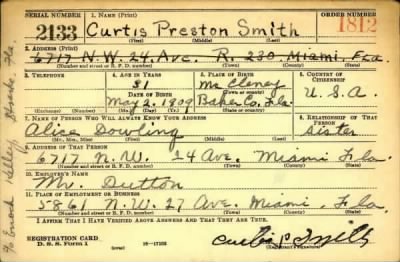 SERIAL NUMBER
1. NAME (Print)
ORDER NUMBER
2133
Curtis Preston Smith
1812
(First) (Middle) (Last)
2. ADDRESS (Print)
6717 N.W. 24 Ave. R. 230 Miami Fla.
(Number and street or R. F. D. number) (Town) (County) (State)
3. TELEPHONE
4. AGE IN YEARS
5. PLACE OF BIRTH
6. COUNTRY OF CITIZENSHIP
31
Mc Cleney
DATE OF BIRTH
(Town or county)
U.S.A.
May 2, 1909
Baker Co. Fla.
(Exchange) (Number)
(Mo.) (Day) (Yr.)
(State or country)
7. NAME OF PERSON WHO WILL ALWAYS KNOW YOUR ADDRESS
8. RELATIONSHIP OF THAT PERSON
Alice Dowling
Sister
(Mr., Mrs., Miss) (First) (Middle) (Last)
9. ADDRESS OF THAT PERSON
6717 N.W. 24 Ave. Miami Fla.
(Number and street or R. F. D. number) (Town) (County) (State)
10. EMPLOYER'S NAME
Mr. Dutton
11. PLACE OF EMPLOYMENT OR BUSINESS
5861 N.W. 27 Ave. Miami, Fla.
(Number and street or R. F. D. number) (Town) (County) (State)
I AFFIRM THAT I HAVE VERIFIED ABOVE ANSWERS AND THAT THEY ARE TRUE.
REGISTRATION CARD
D. S. S. Form 1
(over)
16-17105
Curtis P Smith
(Registrant's signature)
% Enoch Kelley
Fla.